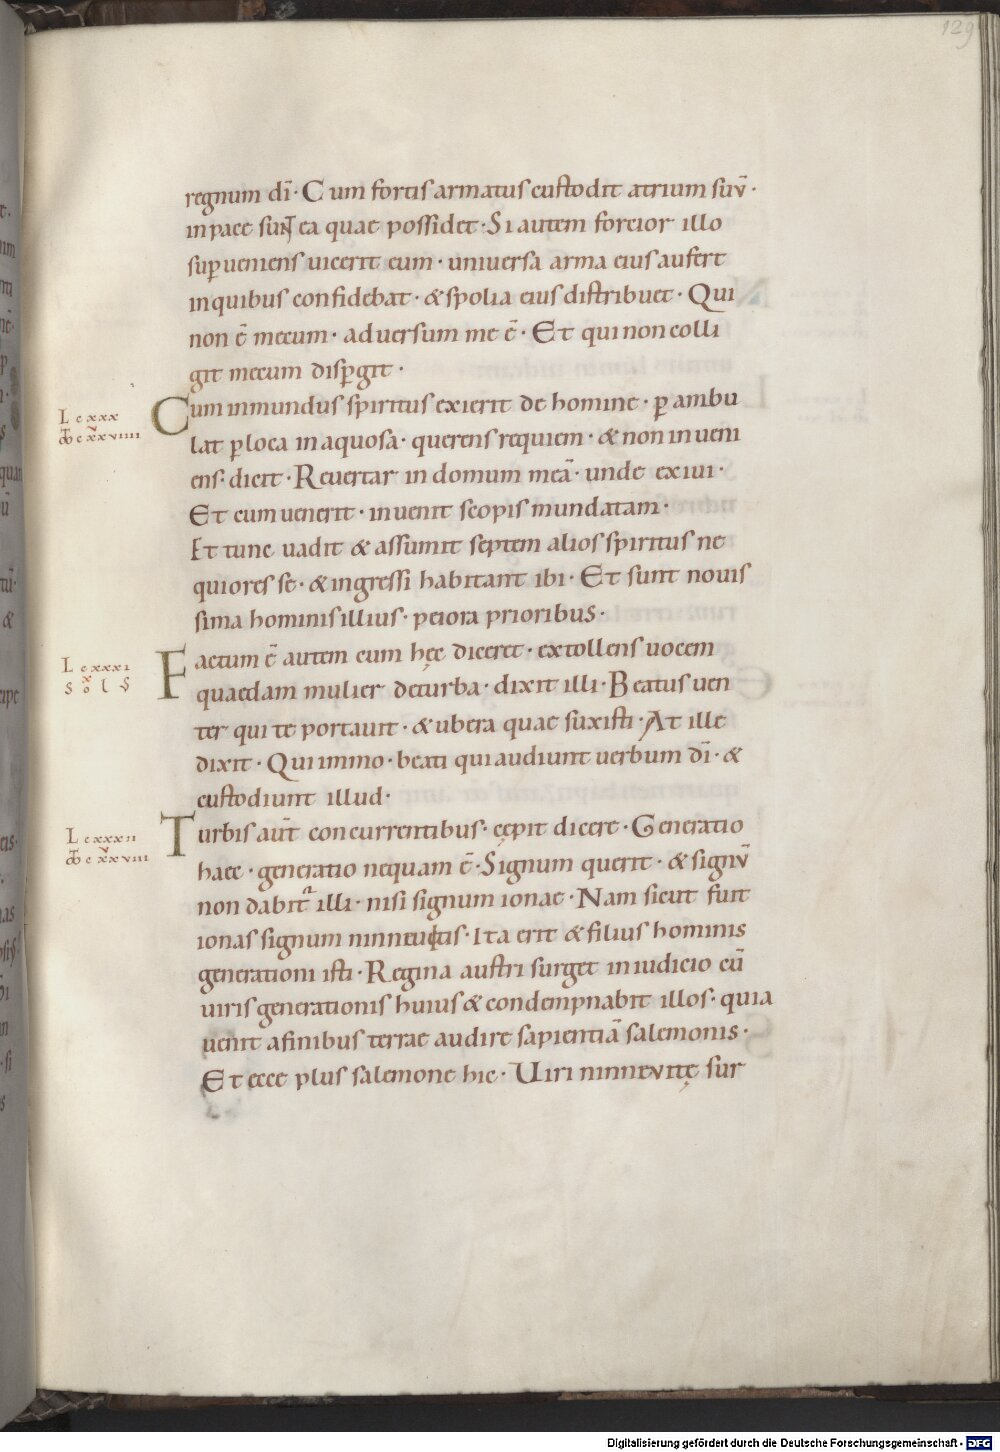 129
regnum dī· Cum fortis armatus custodit atrium suū·
in pace suɴ̄t ea quae possidet· Si autem forcior illo
sup̄ueniens uicerit eum· universa arma eius aufert
in quibus confidebat· & spolia eius distribuet· Qui
non ē mecum· adversum me ē· Et qui non colli
git mecum disp̄git·
L cxxx
Cum inmundus spiritus exierit de homine· p̄ ambu
M̄ cxxviiii
lat p̄ loca inaquosa· querens requiem· & non inveni
ens· dicit· Revertar in domum meā· unde exivi·
Et cum venerit· invenit scopis mundatam·
Et tunc vadit & assumit septem alios spiritus ne
quiores se· & ingressi habitant ibi· Et sunt novis
sima hominis illius· peiora prioribus·
L cxxxi
x
Sol S
Factum ē autem cum hęc diceret· extollens vocem
quaedam mulier deturba· dixit illi· Beatus ven
ter qui te portavit· & ubera quae suxisti· At ille
dixit· Qui immo· beati qui audiunt verbum dī· &
custodiunt illud·
L cxxxii
M̄ cxxviii
Turbis aūt concurrentibus· cępit dicere· Generatio
haec· generatio nequam ē· Signum querit· & signū
non dabit᷑ illi· nisi signum ionae· Nam sicut fuit
ionas signum ninneuitis· Ita erit & filius hominis
generationi isti· Regina austri surget in iudicio cū
viris generationis huius & condempnabit illos· quia
venit afinibus terrae audire sapientiā salemonis·
Et ecce plus salemone hic· Viri ninnevitę sur
Digitalisierung gefördert durch die Deutsche Forschungsgemeinschaft - DFG